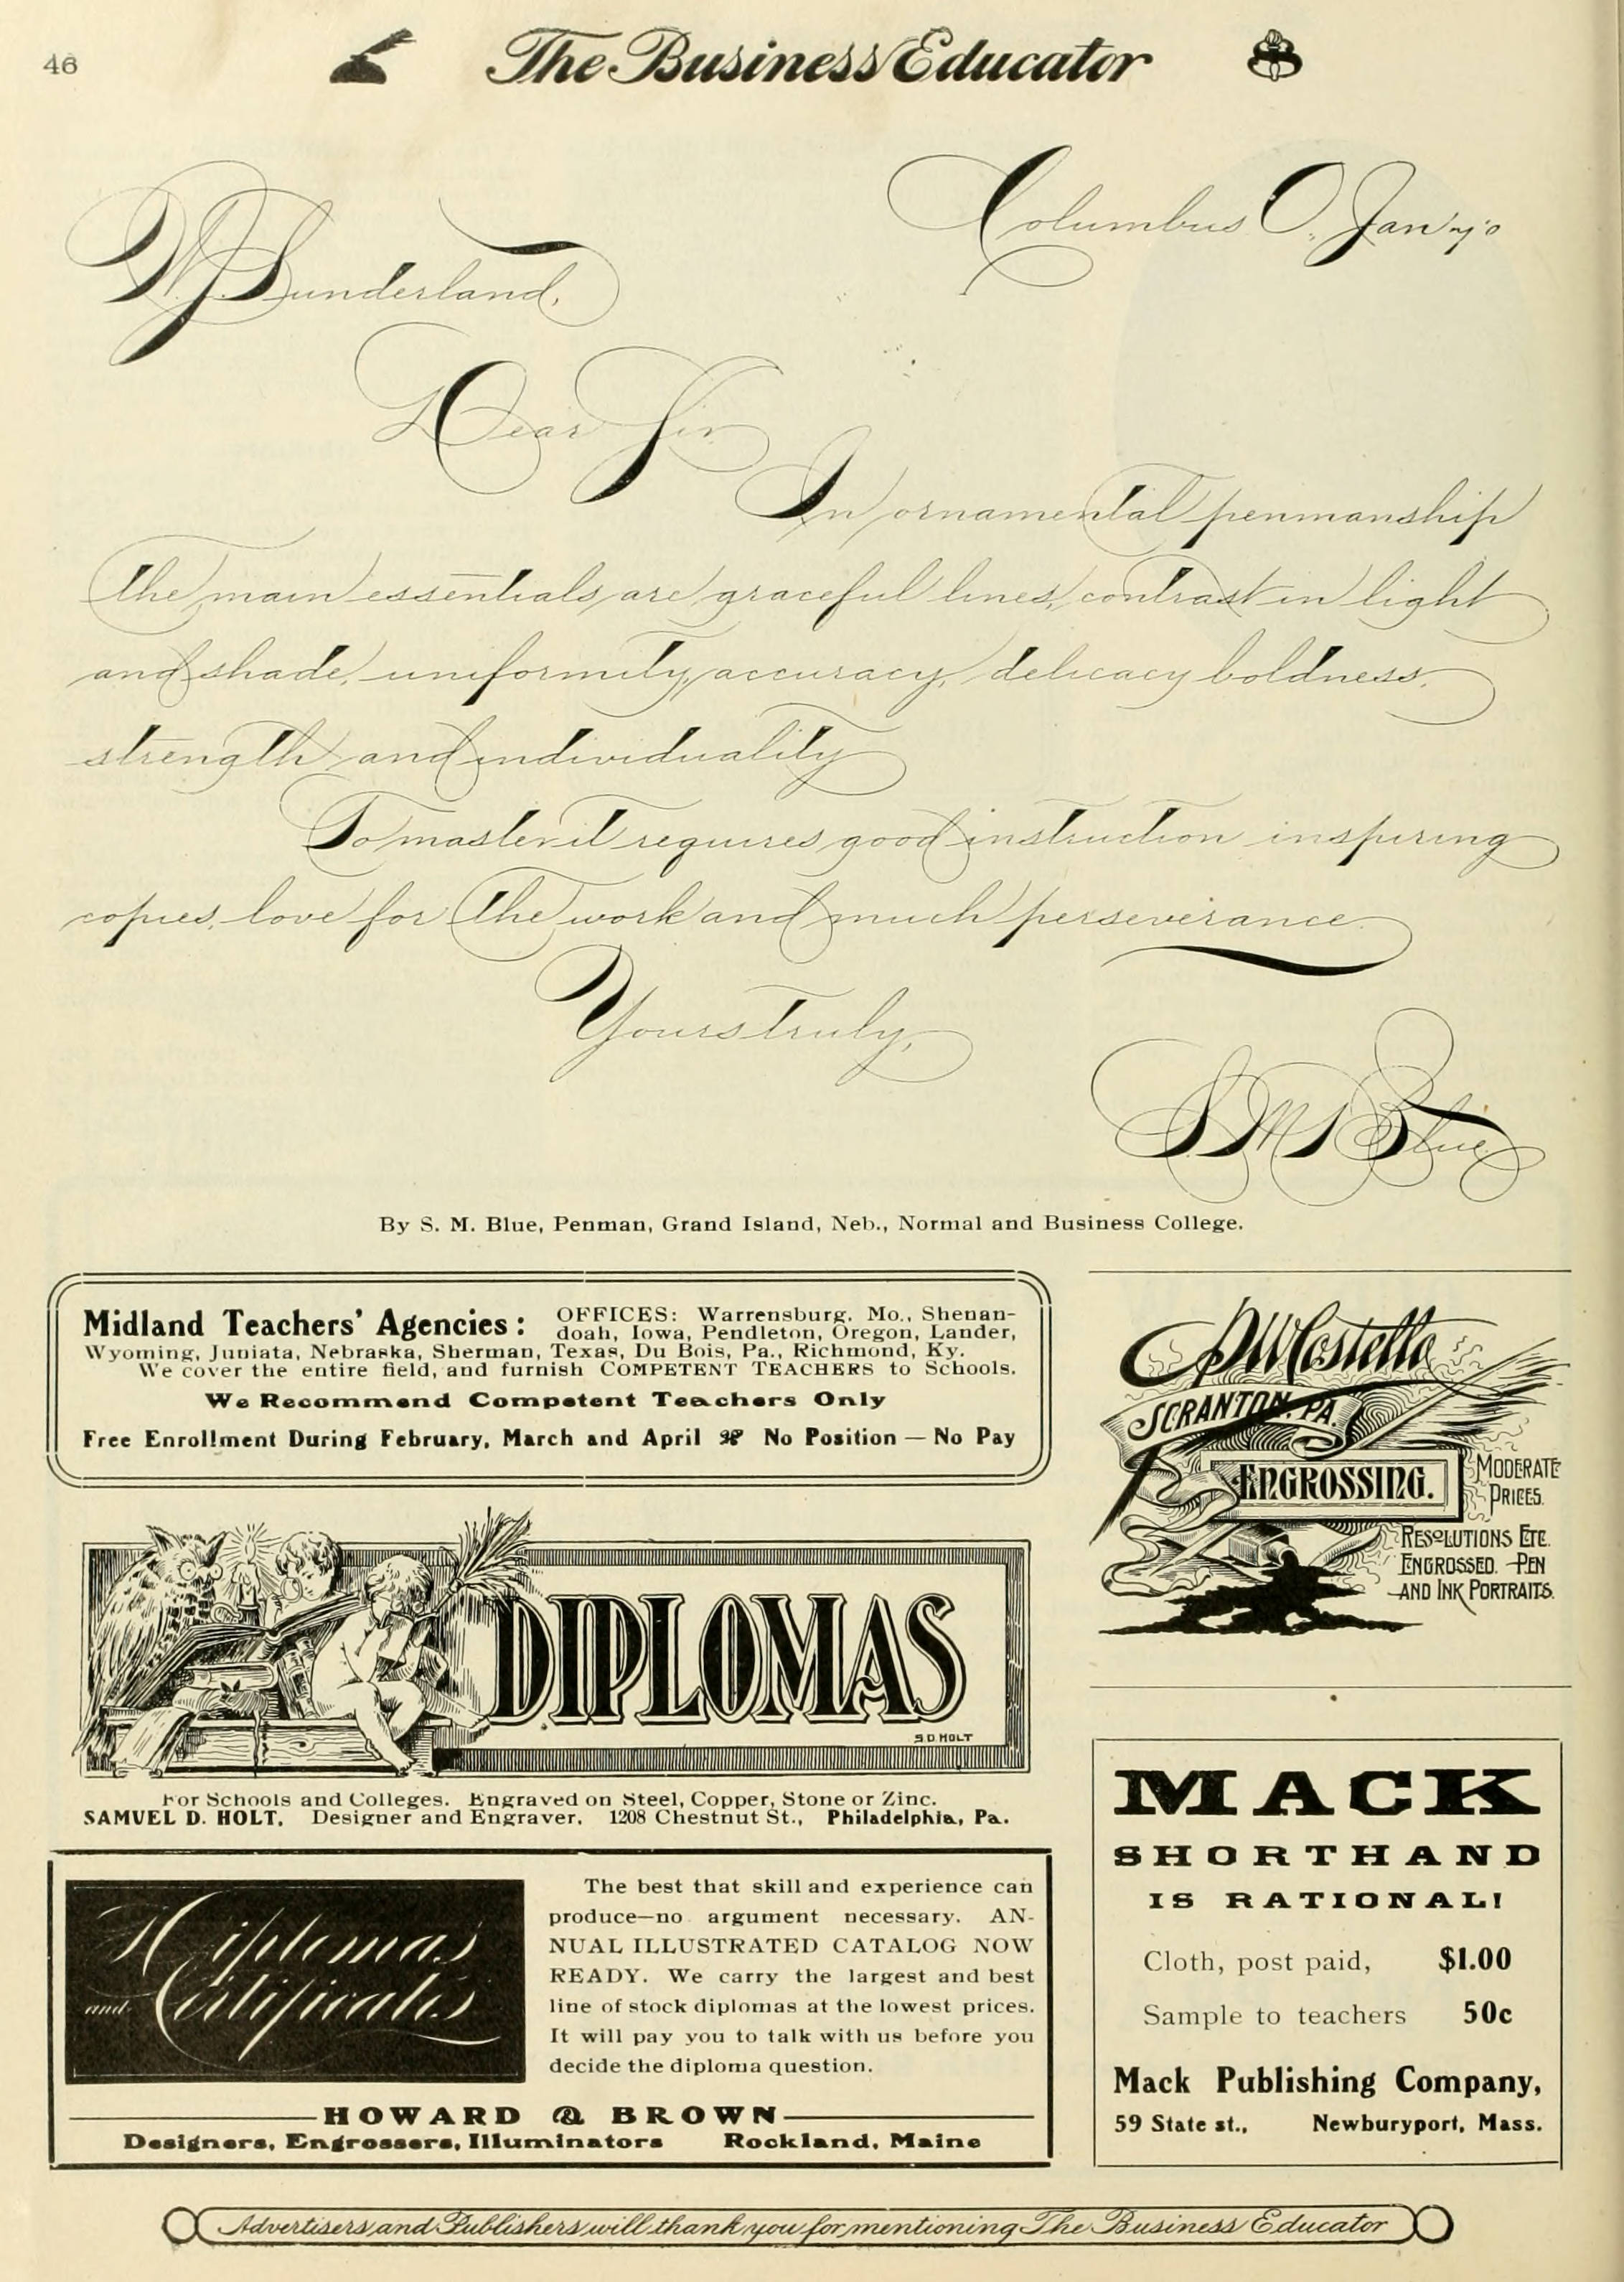 46
The Business Educator
Columbus O. Jan
W. J. Sunderland,
Dear Sir
In ornamental penmanship
the main essentials are graceful lines, contrast in light
and shade, uniformity, accuracy, delicacy boldness,
strength and individuality
To master it requires good instruction inspiring
copies, love for the work and much perseverance.
Yours truly,
S. M. Blue
By S. M. Blue, Penman, Grand Island, Neb., Normal and Business College.
Midland Teachers' Agencies: OFFICES: Warrensburg, Mo., Shenan-
doah, Iowa, Pendleton, Oregon, Lander,
Wyoming, Juniata, Nebraska, Sherman, Texas, Du Bois, Pa., Richmond, Ky.
We cover the entire field, and furnish COMPETENT TEACHERS to Schools.
We Recommend Competent Teachers Only
Free Enrollment During February, March and April No Position — No Pay
P W Costello
SCRANTON, PA.
ENGROSSING.
MODERATE
PRICES.
RESOLUTIONS ETC.
ENGROSSED. PEN
AND INK PORTRAITS.
DIPLOMAS
S.D. HOLT
For Schools and Colleges. Engraved on Steel, Copper, Stone or Zinc.
SAMUEL D. HOLT, Designer and Engraver, 1208 Chestnut St., Philadelphia, Pa.
Diplomas
and Certificates
The best that skill and experience can
produce—no argument necessary. AN-
NUAL ILLUSTRATED CATALOG NOW
READY. We carry the largest and best
line of stock diplomas at the lowest prices.
It will pay you to talk with us before you
decide the diploma question.
HOWARD & BROWN
Designers, Engrossers, Illuminators Rockland, Maine
MACK
SHORTHAND
IS RATIONAL!
Cloth, post paid, $1.00
Sample to teachers 50c
Mack Publishing Company,
59 State st., Newburyport, Mass.
Advertisers and Publishers will thank you for mentioning The Business Educator